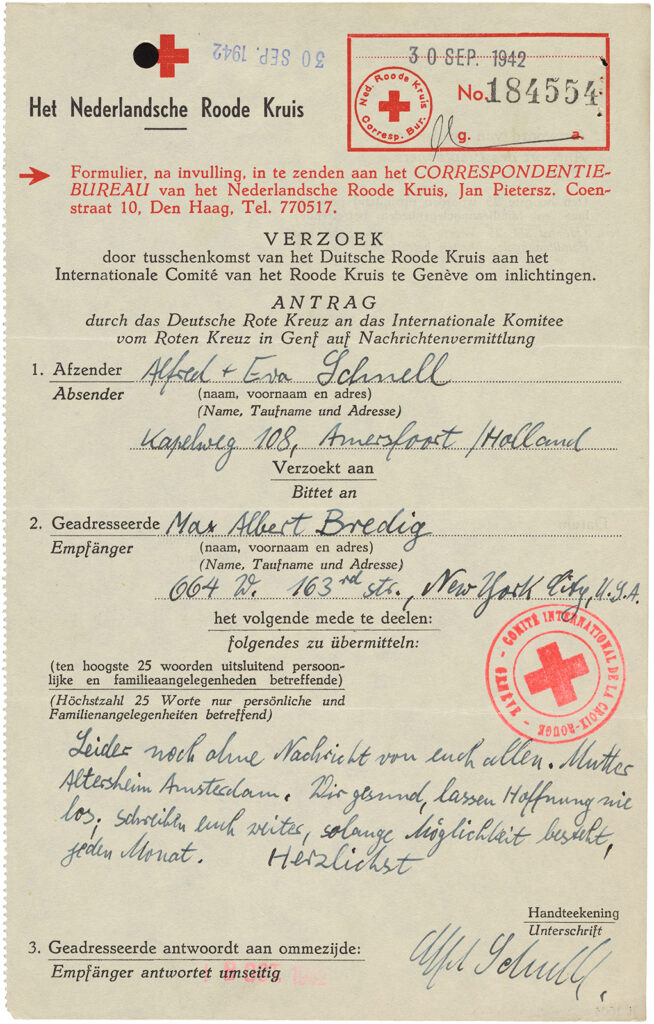 30 SEP. 1942
Het Nederlandsche Roode Kruis
30 SEP. 1942
Ned. Roode Kruis
Corresp. Bur.
No. 184554
g. a.
Formulier, na invulling, in te zenden aan het CORRESPONDENTIE-
BUREAU van het Nederlandsche Roode Kruis, Jan Pietersz. Coen-
straat 10, Den Haag, Tel. 770517.
VERZOEK
door tusschenkomst van het Duitsche Roode Kruis aan het
Internationale Comité van het Roode Kruis te Genève om inlichtingen.
ANTRAG
durch das Deutsche Rote Kreuz an das Internationale Komitee
vom Roten Kreuz in Genf auf Nachrichtenvermittlung
1. Afzender Alfred + Eva Schnell
Absender (naam, voornaam en adres)
(Name, Taufname und Adresse)
Kapelweg 108, Amersfoort / Holland
Verzoekt aan
Bittet an
2. Geadresseerde Max Albert Bredig
Empfänger (naam, voornaam en adres)
(Name, Taufname und Adresse)
664 W. 163rd str., New York City, U.S.A.
het volgende mede te deelen:
folgendes zu übermitteln:
(ten hoogste 25 woorden uitsluitend persoon-
lijke en familieaangelegenheden betreffende)
(Höchstzahl 25 Worte nur persönliche und
Familienangelegenheiten betreffend)
COMITÉ INTERNATIONAL DE LA CROIX-ROUGE - GENÈVE -
Leider noch ohne Nachricht von euch allen. Mutter
Altersheim Amsterdam. Wir gesund, lassen Hoffnung nie
los, schreiben euch weiter, solange Möglichkeit besteht,
jeden Monat. Herzlichst
Handteekening
Unterschrift
3. Geadresseerde antwoordt aan ommezijde:
Empfänger antwortet umseitig
Alfred Schnell.